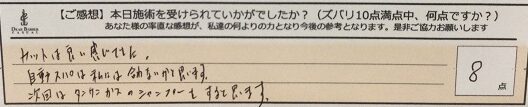 【ご感想】本日施術を受けられていかがでしたか？（ズバリ10点満点中、何点ですか？）
あなた様の率直な感想が、私達の何よりの力となり今後の参考となります。是非ご協力お願いします
カットは良い感じでした。
スパは私には合わないかと思います。
次回はタンサンガスのシャンプーもすると思います。
8点